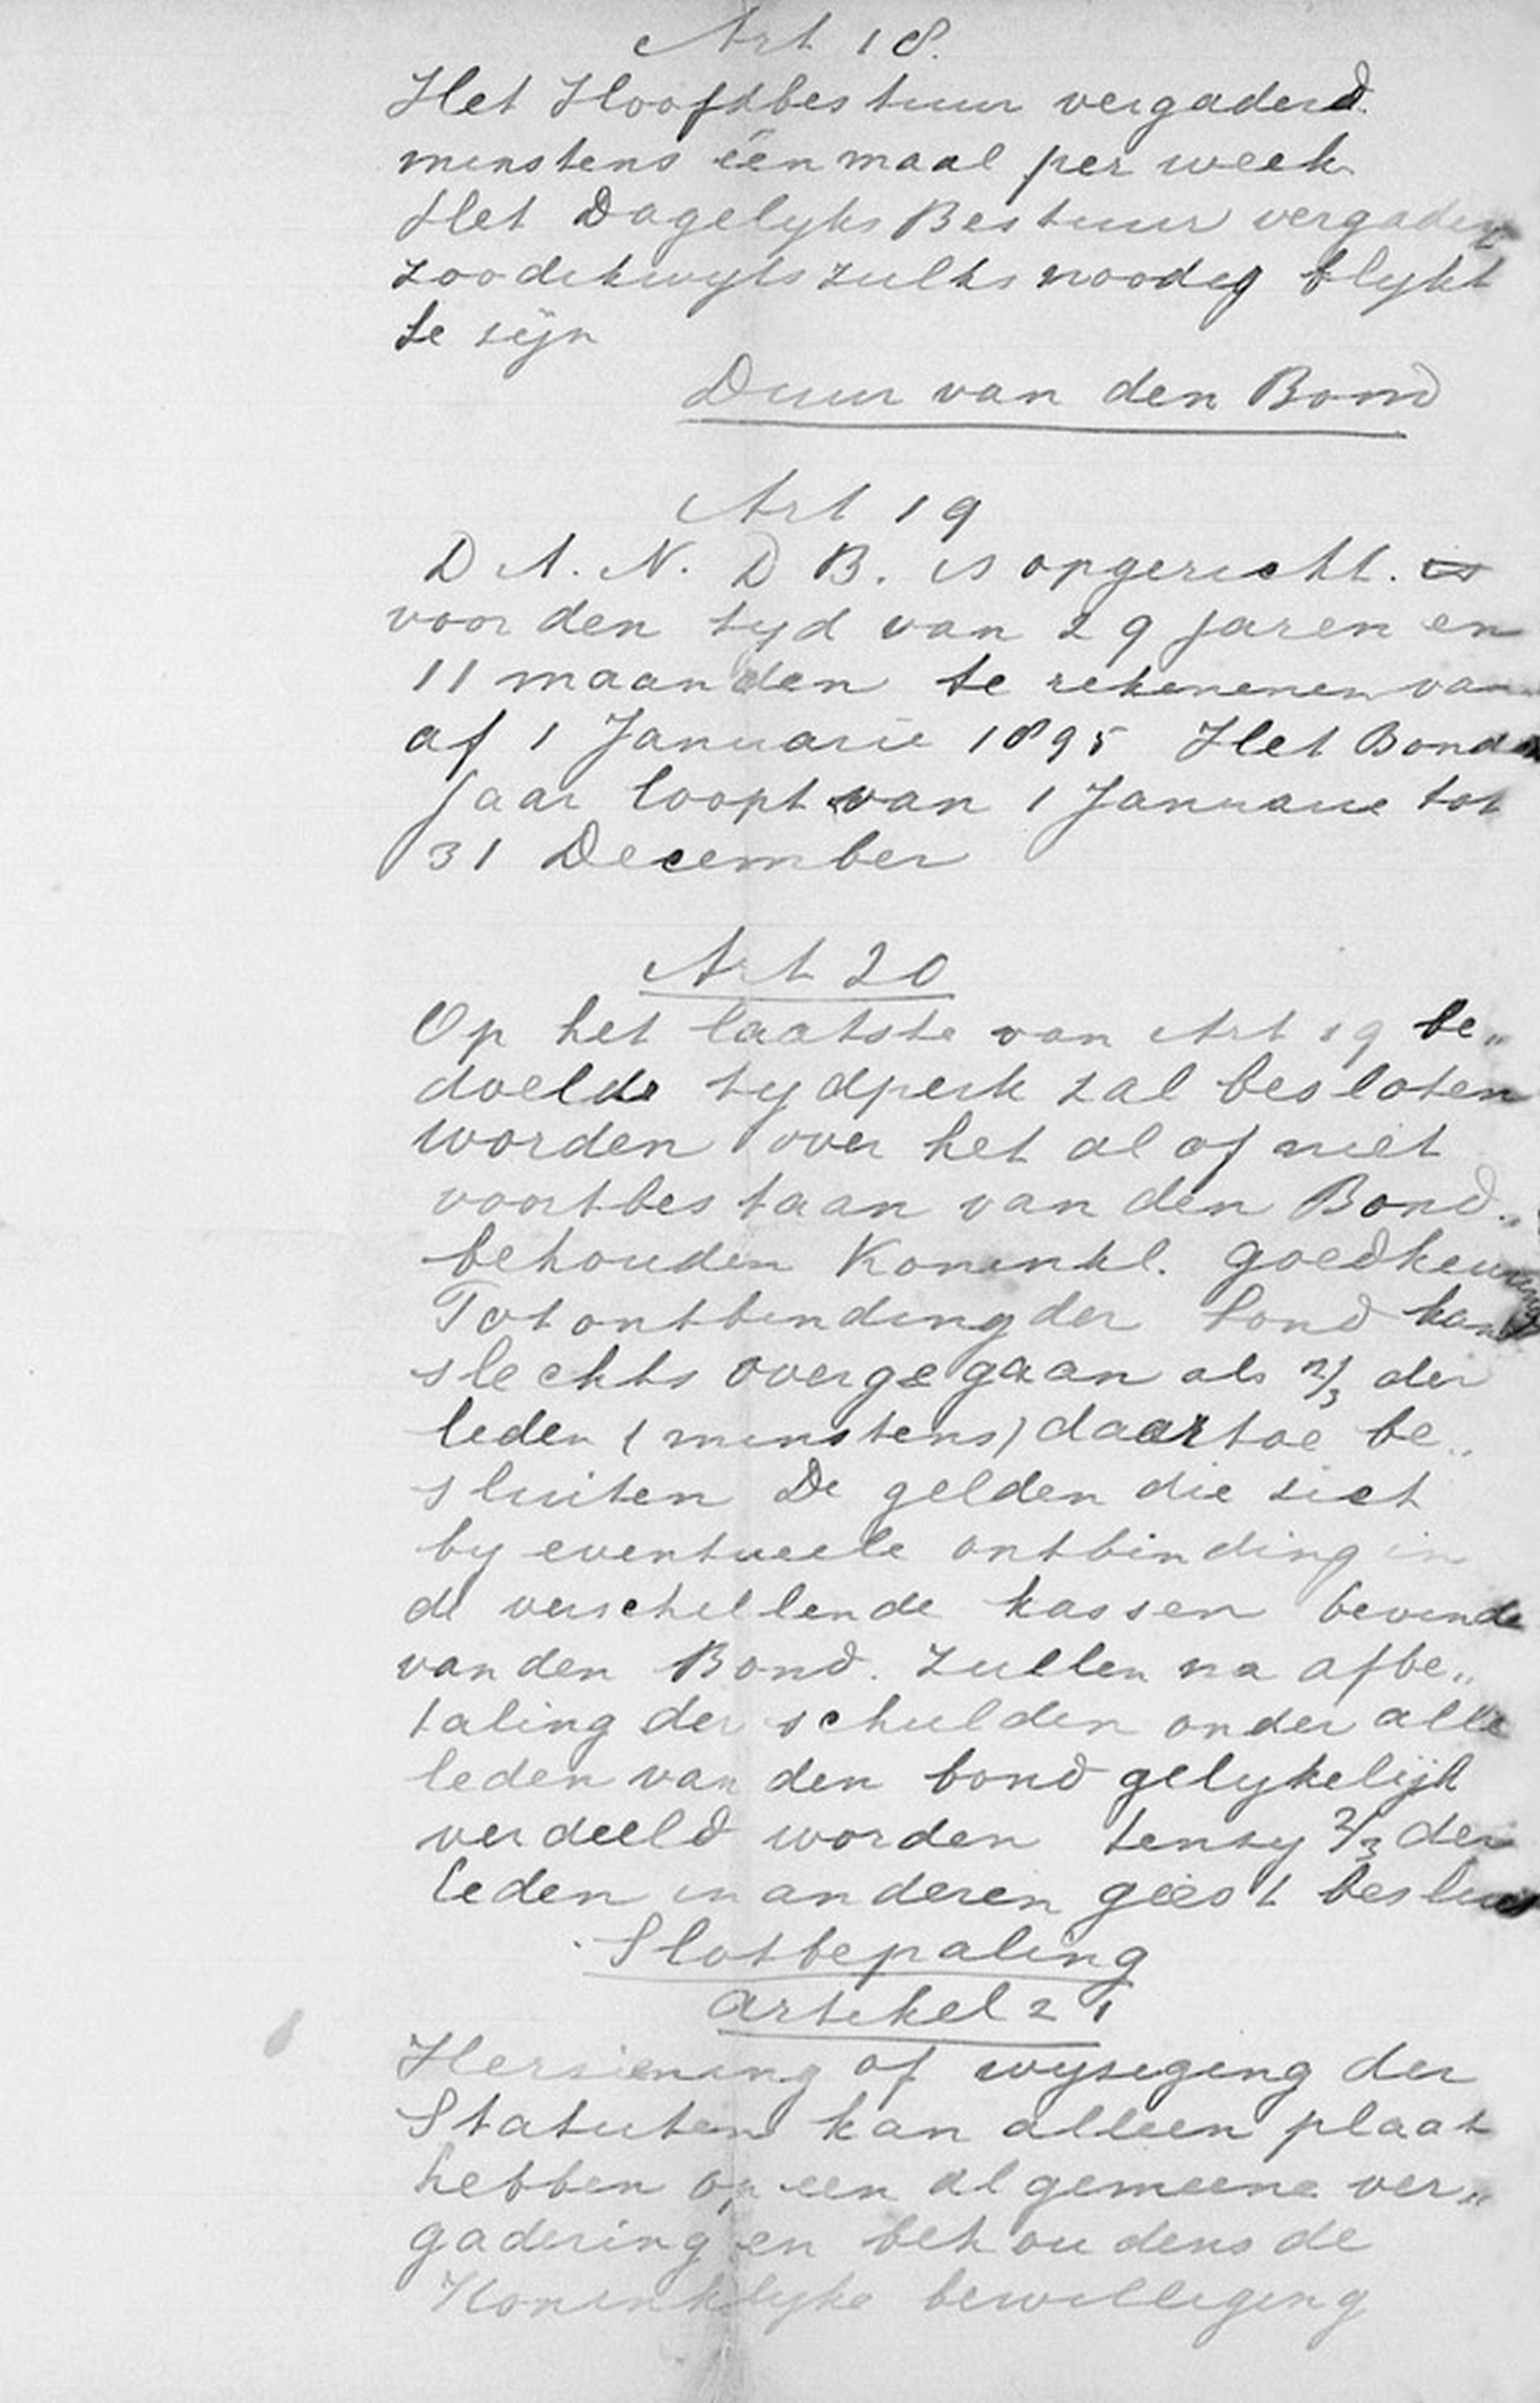 Art 18.
Het Hoofdbestuur vergaderd
minstens één maal per week
Het Dagelyks Bestuur vergadert
zoodikwyls zulks noodig blykt
te zijn
Duur van den Bond
Art 19
D A. N. D B. is opgericht. is
voor den tyd van 29 jaren en
11 maanden te rekenenen van
af 1 Januarie 1895 Het Bonds
jaar loopt van 1 Januarie tot
31 December
Art 20
Op het laatste van Art 19 be„
doelde tydperk zal besloten
worden over het al of niet
voortbestaan van den Bond.
behouden Koninkl. goedkeuring
Tot ontbinding der bond kan
slechts overgegaan als 2/3 der
leden (minstens) daartoe be„
sluiten De gelden die zich
by eventueele ontbinding in
de verschellende kassen bevinde
van den Bond. zullen na afbe„
taling der schulden onder alle
leden van den bond gelykelijk
verdeeld worden tenzy 2/3 der
leden in anderen geest
Slotbepaling
Artikel 21
Herziening of wyziging der
Statuten kan alleen plaat
hebben op een algemeene ver„
gadering en behoudens de
Koninklyke bewilliging